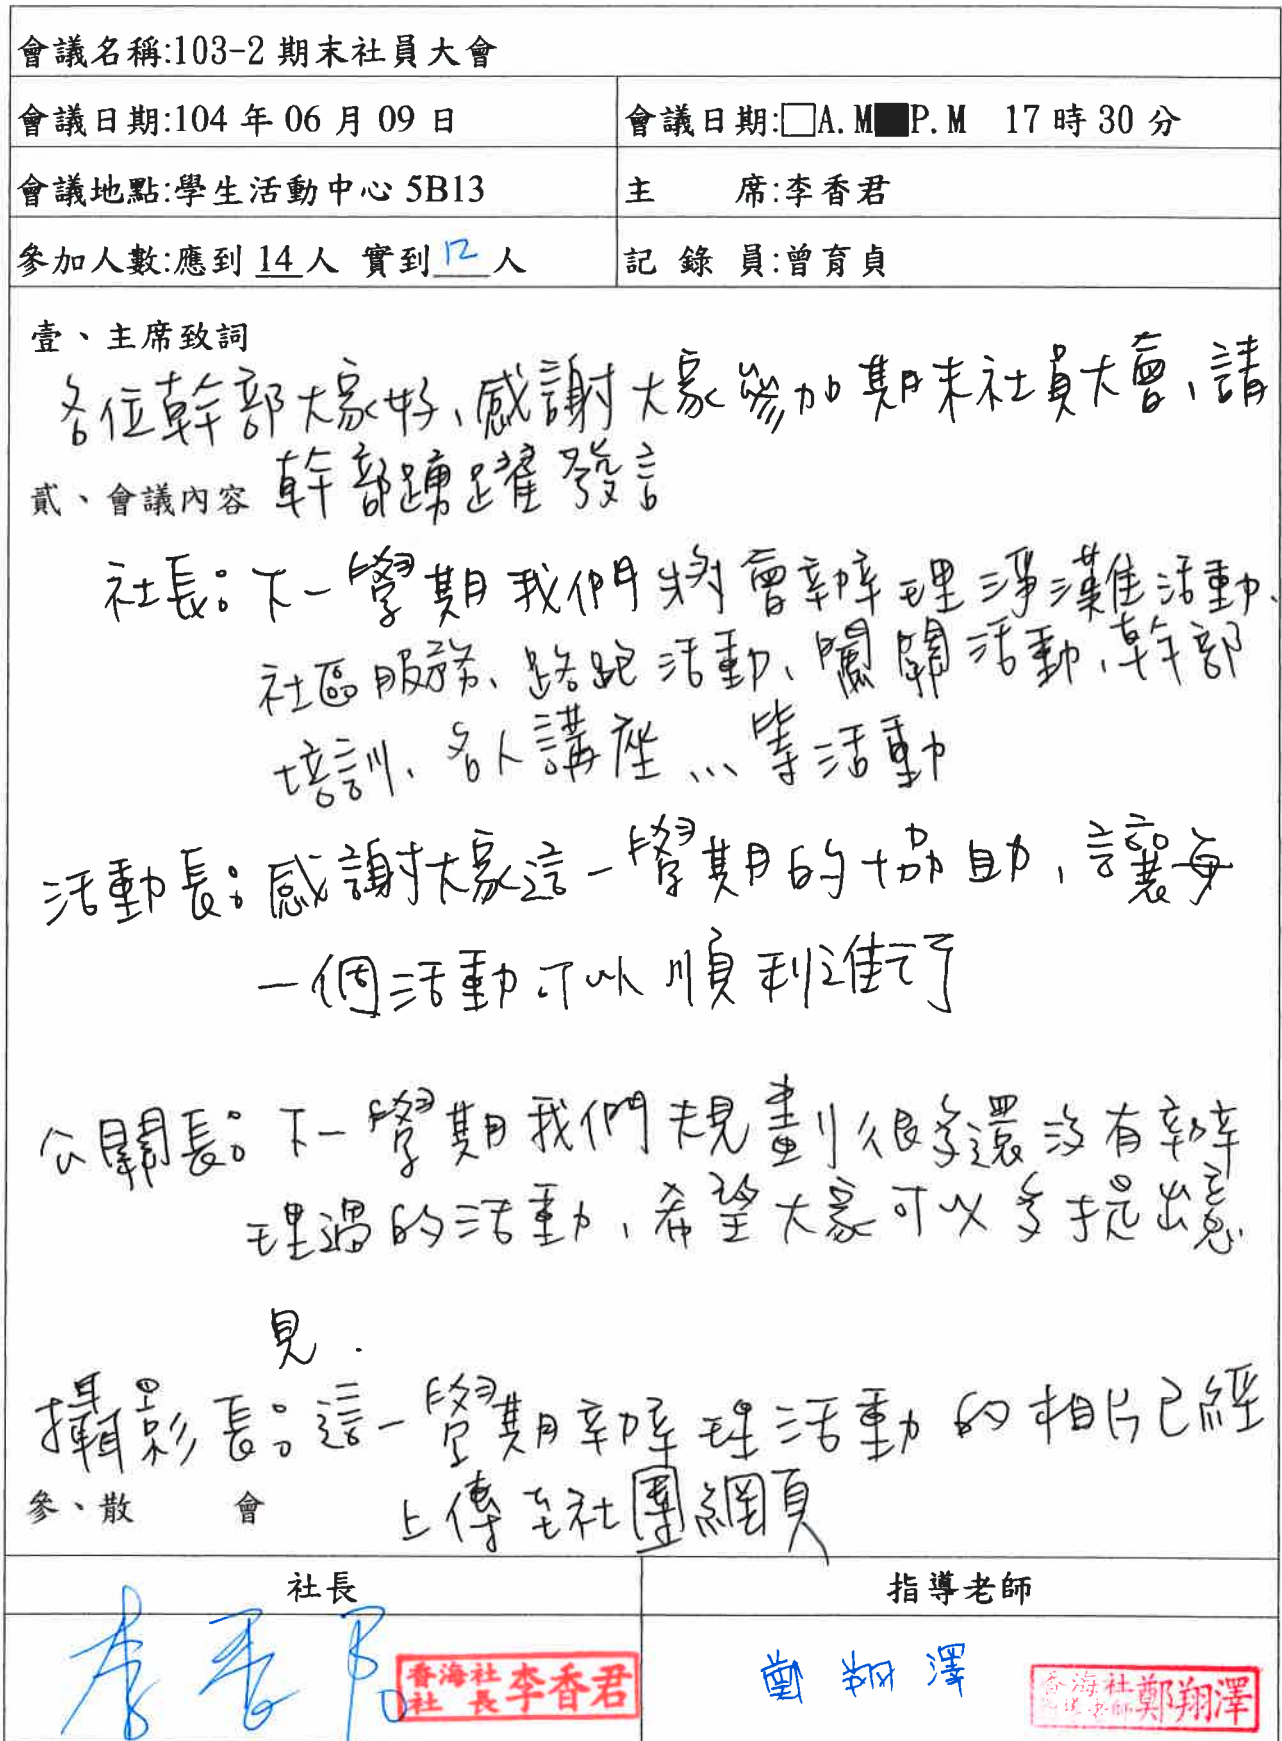 會議名稱:103-2 期末社員大會
會議日期:104 年 06 月 09 日
會議日期:□A.M■P.M 17 時 30 分
會議地點:學生活動中心 5B13
主 席:李香君
參加人數:應到 14 人 實到 12 人
記 錄 員:曾育貞
壹、主席致詞
各位幹部大家好、感謝大家參加期末社員大會、請
幹部踴躍發言
貳、會議內容
社長:下一學期我們將會辦理淨灘活動、
社區服務、路跑活動、闖關活動、幹部
培訓、名人講座...等活動
活動長:感謝大家這一學期的協助,讓每
一個活動可以順利進行
公關長:下一學期我們規劃很多還沒有辦
理過的活動,希望大家可以多提出意
見.
攝影長:這一學期辦理活動的相片已經
上傳至社團網頁
參、散 會
社長
指導老師
李香君
香海社
社 長 李香君
鄭翔澤
香海社
指導老師 鄭翔澤